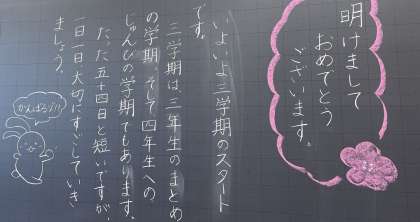 明けまして
おめでとう
ございます。
いよいよ三学期のスタート
です。
三学期は三年生のまとめ
の学期、そして四年生への
じゅんびの学期でもあります。
たった五十四日と短いですが、
一日一日大切にすごしていき
ましょう。
がんばるゾ!!